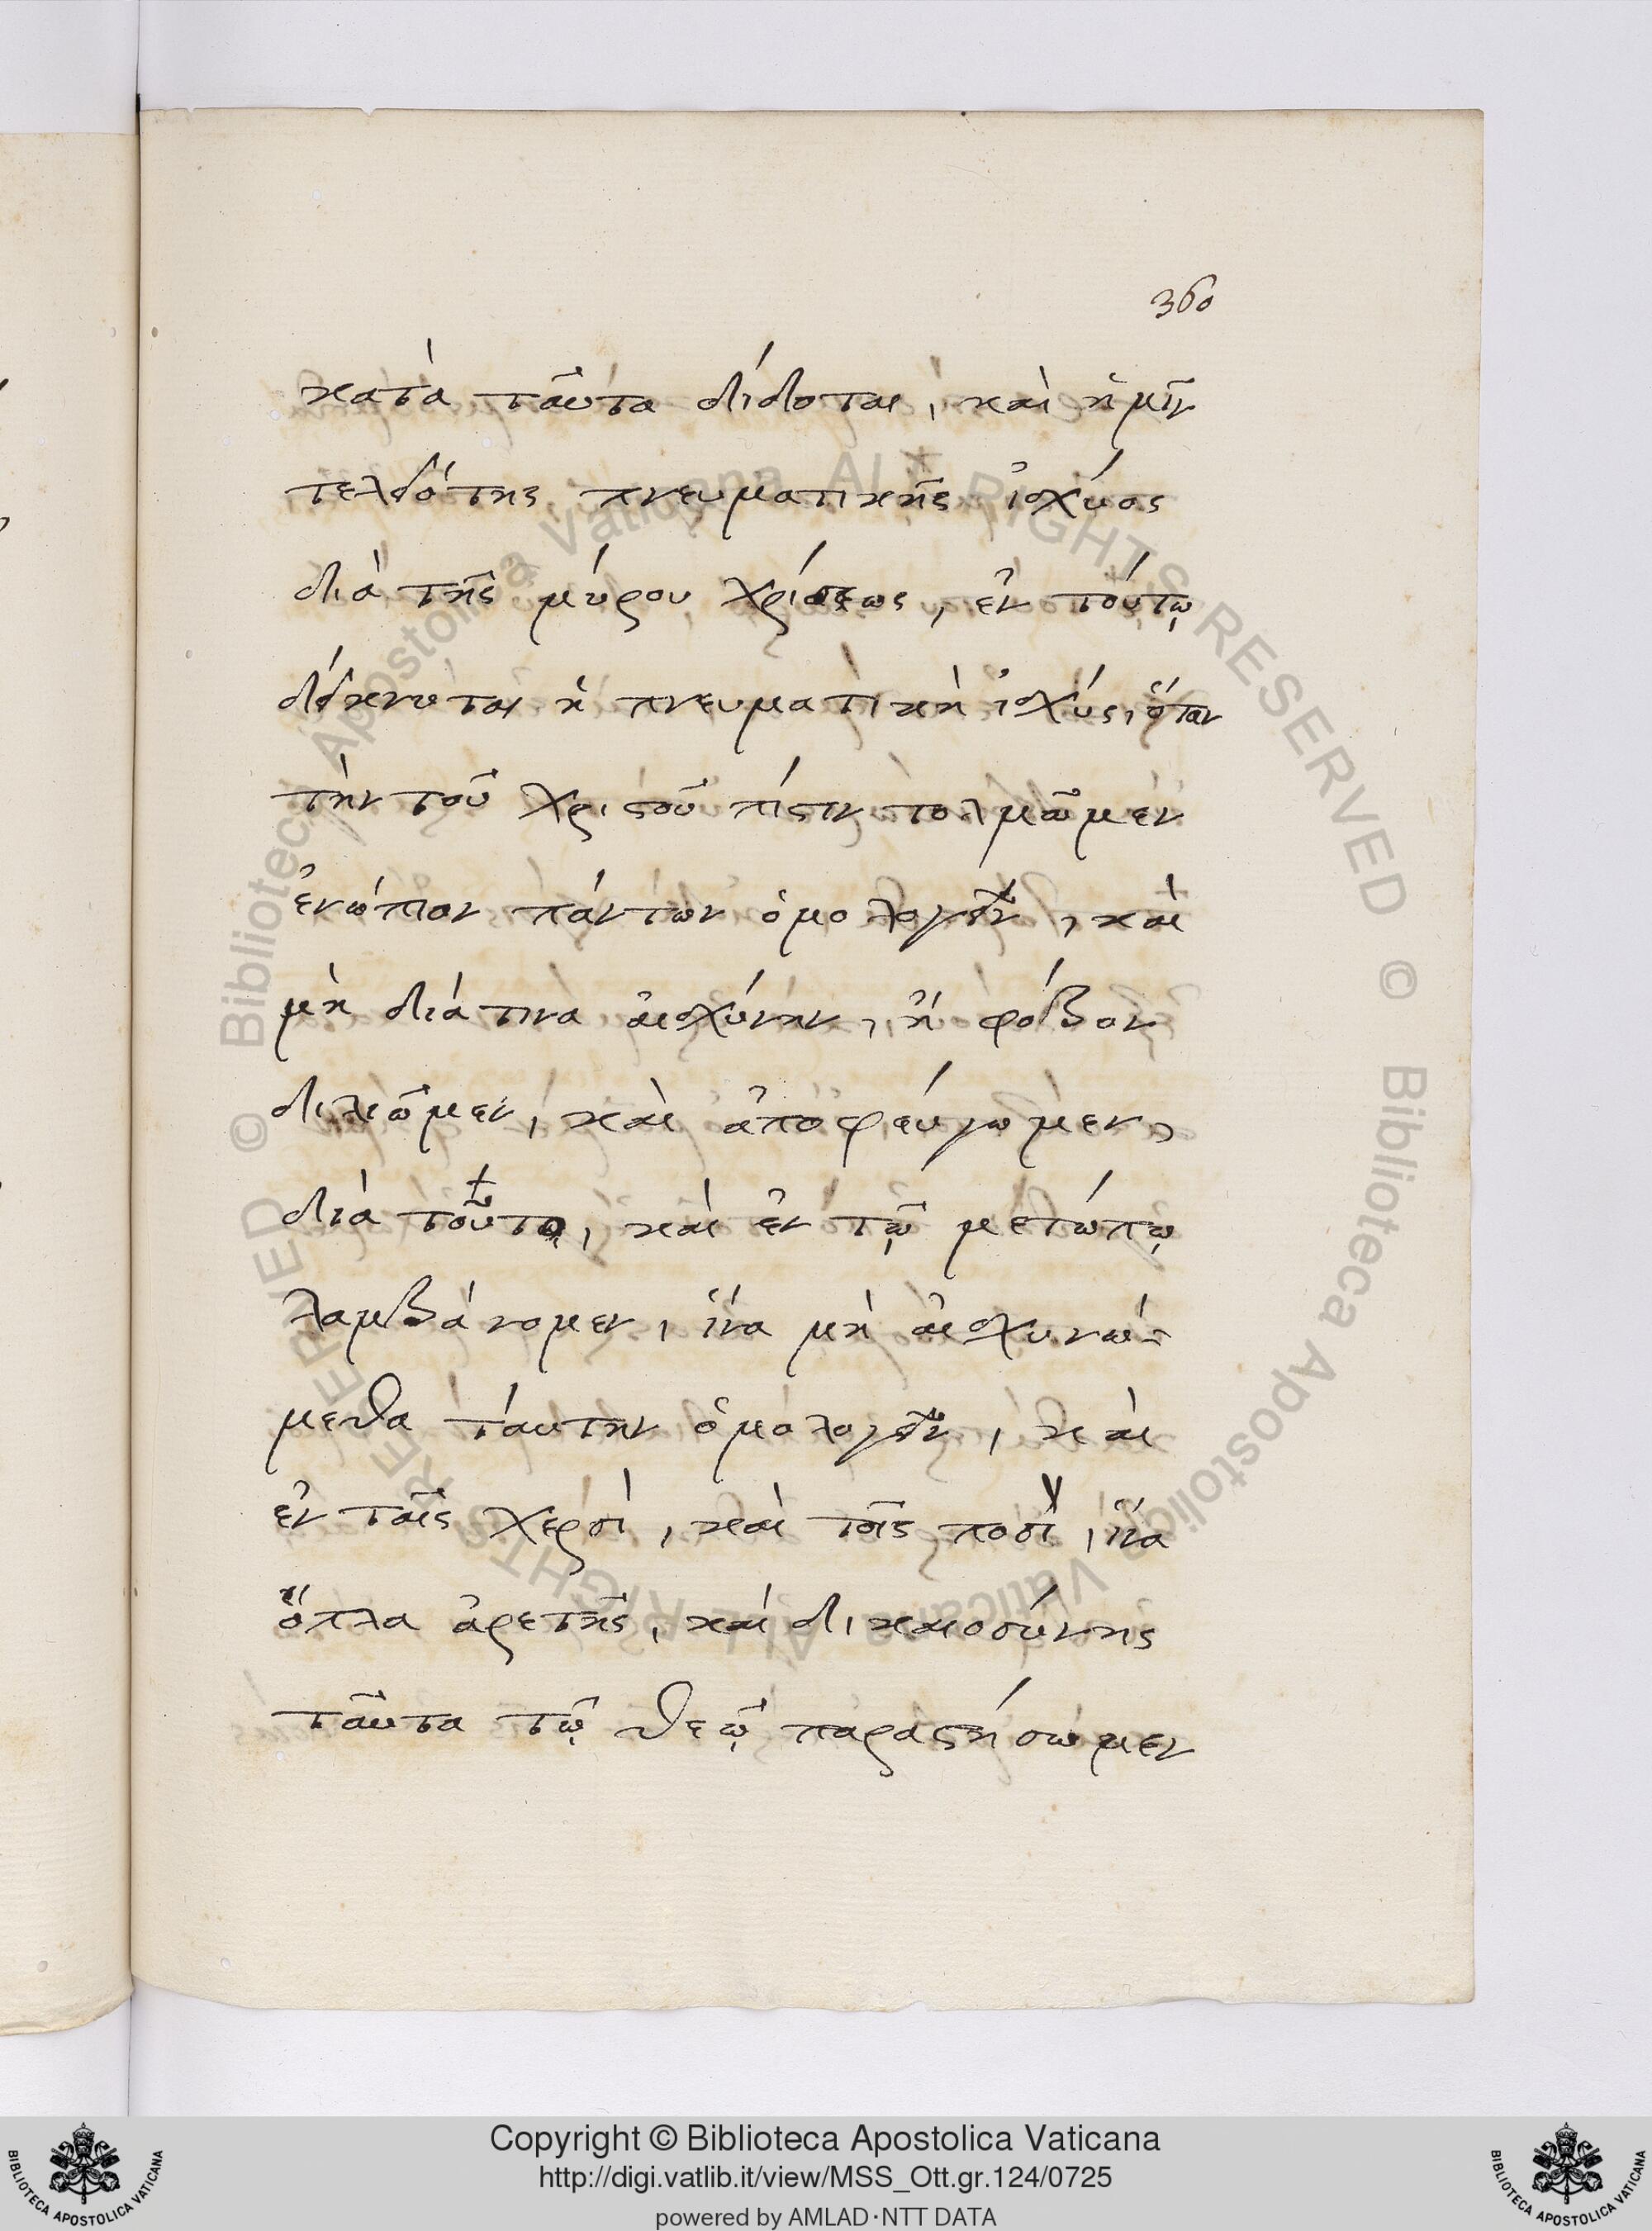 360
κατὰ ταῦτα δίδοται, καὶ ἡμῖν
τελειότης πνευματικῆς ἰσχύος
διὰ τῆς μύρου χρίσεως, ἐν τούτῳ
δείκνυται ἡ πνευματικὴ ἰσχύς, ὅταν
τὴν τοῦ Χριστοῦ πίστιν τολμῶμεν
ἐνώπιον πάντων ὁμολογεῖν, καὶ
μὴ διά τινα αἰσχύνην, ἢ φόβον
διλιῶμεν, καὶ ἀποφεύγωμεν,
διὰ τοῦτο, καὶ ἐν τῷ μετώπῳ
λαμβάνομεν, ἵνα μὴ αἰσχυνώ-
μεθα ταύτην ὁμολογεῖν, καὶ
ἐν ταῖς χερσὶ, καὶ τοῖς ποσὶ, ἵνα
ὅπλα ἀρετῆς, καὶ δικαιοσύνης
ταῦτα τῷ θεῷ παραστήσωμεν
© Biblioteca Apostolica Vaticana ALL RIGHTS RESERVED © Biblioteca Apostolica Vaticana ALL RIGHTS RESERVED
Copyright © Biblioteca Apostolica Vaticana
http://digi.vatlib.it/view/MSS_Ott.gr.124/0725
powered by AMLAD·NTT DATA
BIBLIOTECA APOSTOLICA VATICANA
BIBLIOTECA APOSTOLICA VATICANA